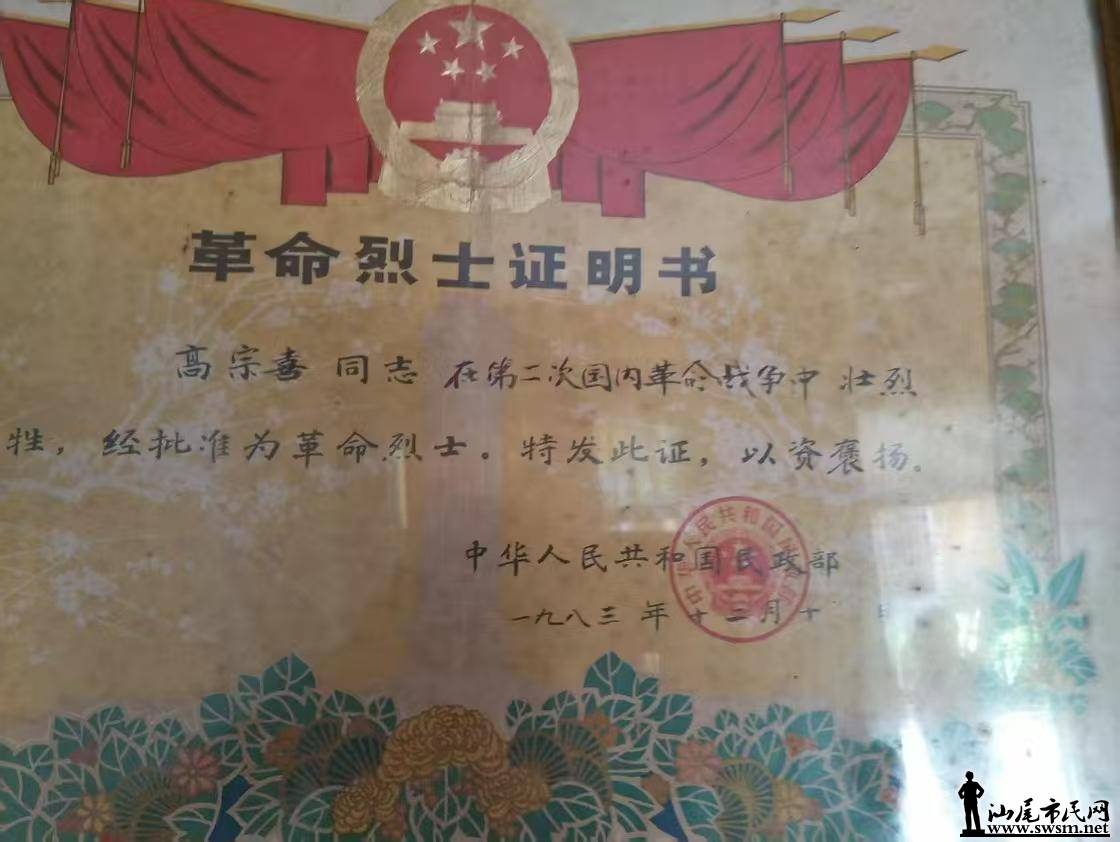 革命烈士证明书
高宗善 同志 在第二次国内革命战争中 壮烈
牲，经批准为革命烈士。特发此证，以资褒扬。
中华人民共和国民政部
一九八三 年 十二月 十 日
汕尾市民网
www.swsm.net